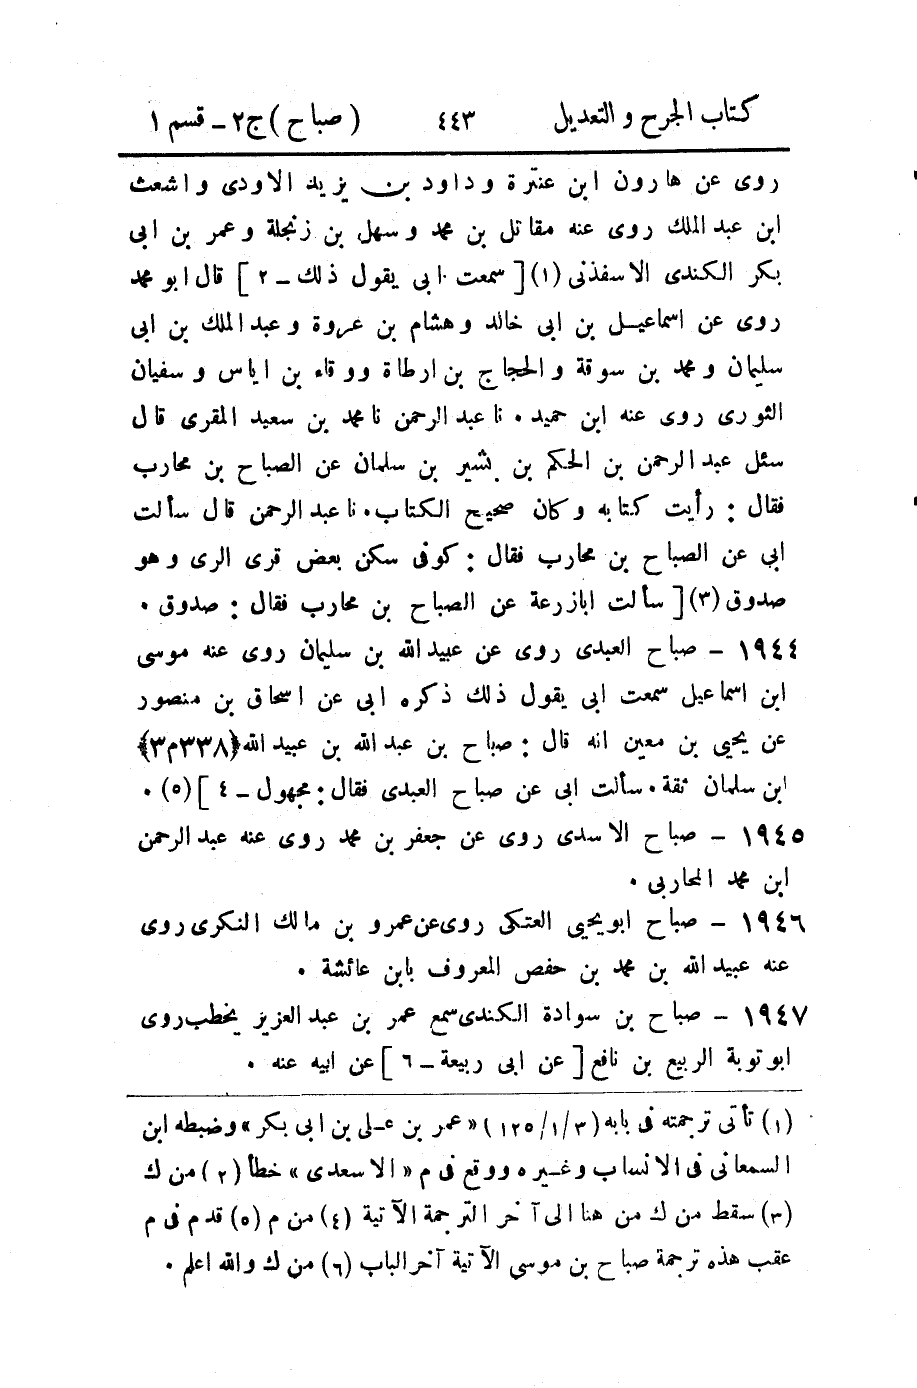 كتاب الجرح والتعديل ٤٤٣ (صباح) ج٢ - قسم ١
روى عن هارون ابن عنترة وداود بن يزيد الاودى واشعث
ابن عبد الملك روى عنه مقاتل بن محمد وسهل بن زنجلة وعمر بن ابى
بكر الكندى الاسفذنى (١) [سمعت ابى يقول ذلك - ٢] قال ابو محمد
روى عن اسماعيل بن ابى خالد وهشام بن عروة وعبد الملك بن ابى
سليمان ومحمد بن سوقة والحجاج بن ارطاة ووقاء بن اياس وسفيان
الثورى روى عنه ابن حميد . نا عبد الرحمن نا محمد بن سعيد المقرى قال
سئل عبد الرحمن بن الحكم بن بشير بن سلمان عن الصباح بن محارب
فقال : رأيت كتابه وكان صحيح الكتاب . نا عبد الرحمن قال سألت
ابى عن الصباح بن محارب فقال : كوفى سكن بعض قرى الرى وهو
صدوق (٣) [سألت ابا زرعة عن الصباح بن محارب فقال : صدوق .
١٩٤٤ - صباح العبدى روى عن عبيد الله بن سليمان روى عنه موسى
ابن اسماعيل سمعت ابى يقول ذلك ذكره ابى عن اسحاق بن منصور
عن يحيى بن معين انه قال : صباح بن عبد الله بن عبيد الله (٣٣٨م٣)
ابن سلمان ثقة . سألت ابى عن صباح العبدى فقال : مجهول - ٤] (٥) .
١٩٤٥ - صباح الاسدى روى عن جعفر بن محمد روى عنه عبد الرحمن
ابن محمد المحاربى .
١٩٤٦ - صباح ابو يحيى العتكى روى عن عمرو بن مالك النكرى روى
عنه عبيد الله بن محمد بن حفص المعروف بابن عائشة .
١٩٤٧ - صباح بن سوادة الكندى سمع عمر بن عبد العزيز يخطب روى
ابو توبة الربيع بن نافع [عن ابى ربيعة - ٦] عن ابيه عنه .
(١) تأتى ترجمته فى بابه (٣/١/١٢٥) «عمر بن على بن ابى بكر» وضبطه ابن
السمعانى فى الانساب وغيره ووقع فى م «الاسعدى» خطأ (٢) من ك
(٣) سقط من ك من هنا الى آخر الترجمة الآتية (٤) من م (٥) قدم فى م
عقب هذه ترجمة صباح بن موسى الآتية آخر الباب (٦) من ك والله اعلم .